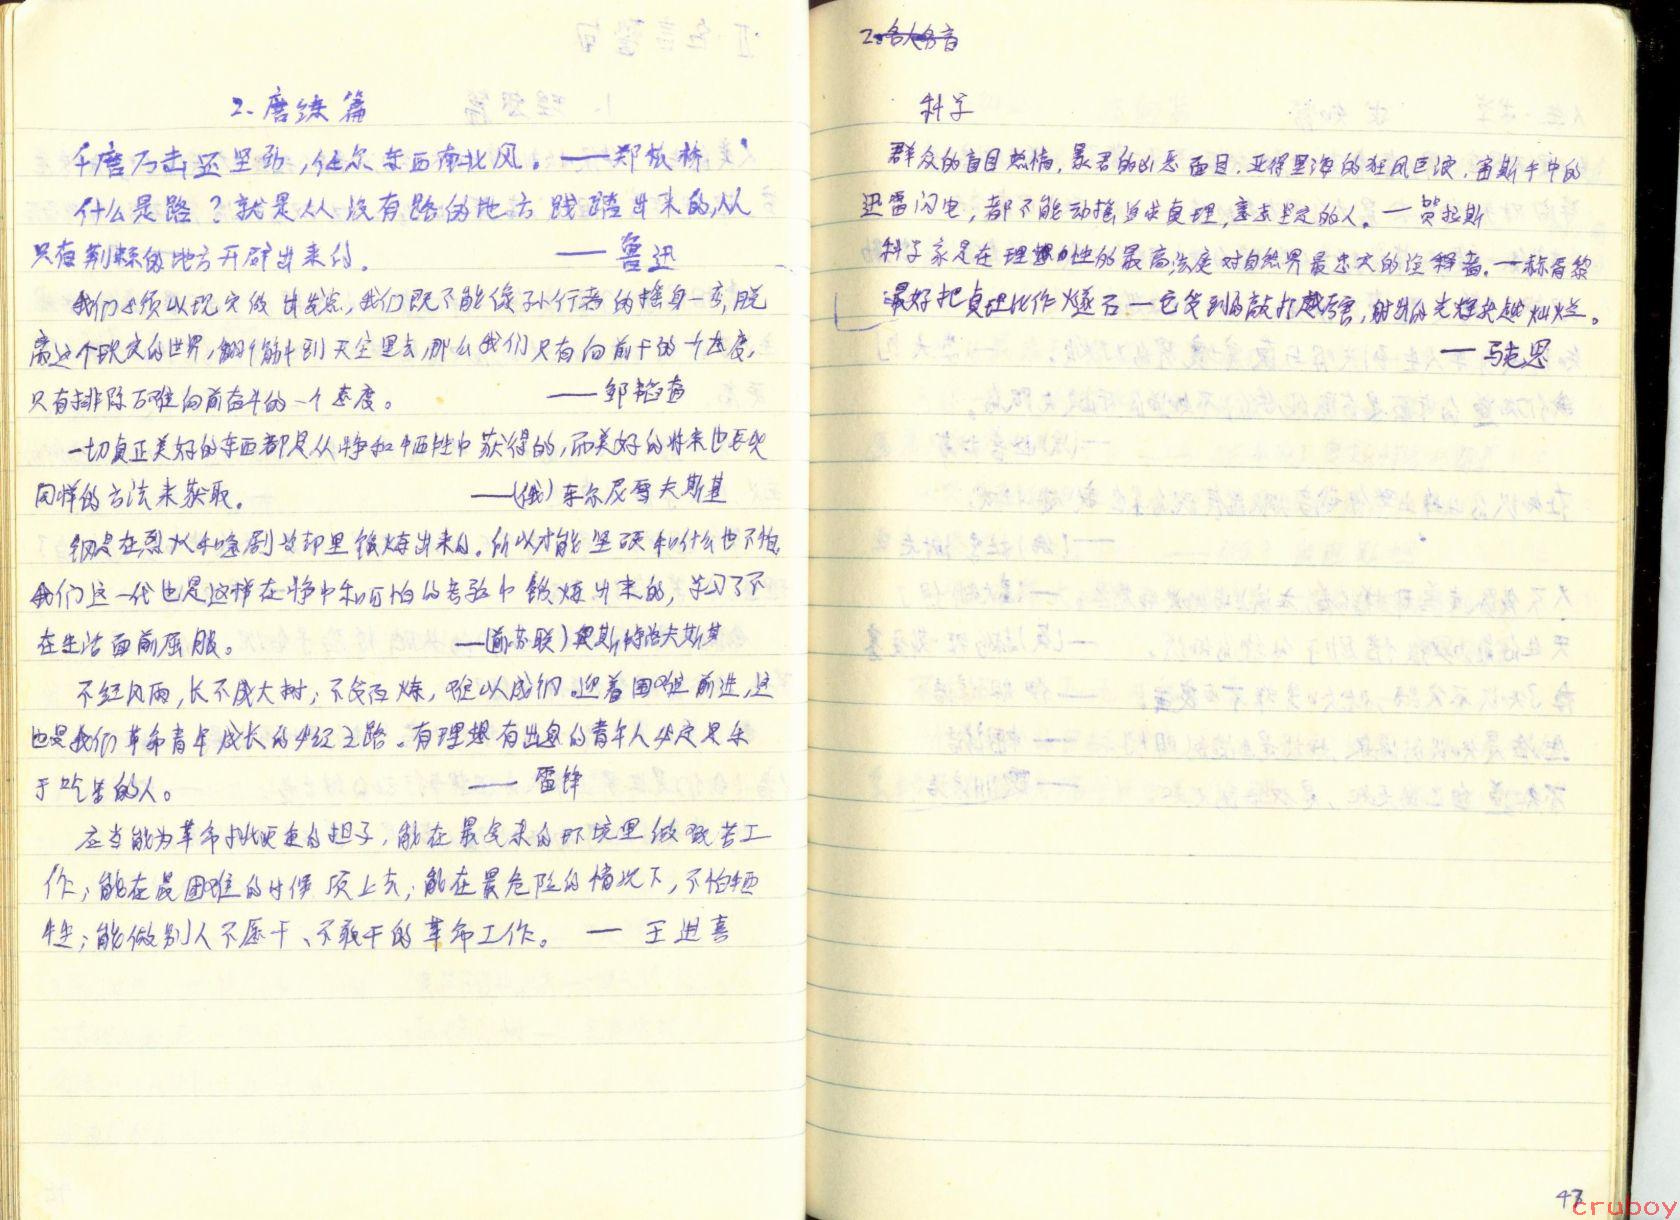 2. 磨练篇
千磨万击还坚劲,任尔东西南北风。——郑板桥
什么是路?就是从没有路的地方践踏出来的,从
只有荆棘的地方开辟出来的。 ——鲁迅
我们必须以现实做出发点,我们既不能像孙行者的摇身一变,脱
离这个现实的世界,翻个筋斗到天空里去,那么我们只有向前干的一个态度,
只有排除万难向前奋斗的一个态度。 ——邹韬奋
一切真正美好的东西都是从斗争和牺牲中获得的,而美好的将来也要以
同样的方法来获取。 ——(俄)车尔尼雪夫斯基
钢是在烈火和急剧冷却里锻炼出来的。所以才能坚硬和什么也不怕,
我们这一代也是这样在斗争中和可怕的考验中锻炼出来的,学习了不
在生活面前屈服。 ——(前苏联)奥斯特洛夫斯基
不经风雨,长不成大树;不受百炼,难以成钢。迎着困难前进,这
也是我们革命青年成长的必经之路。有理想有出息的青年人必定是乐
于吃苦的人。 —— 雷锋
应当能为革命挑更重的担子,能在最艰苦的环境里做艰苦工
作;能在最困难的时候顶上去;能在最危险的情况下,不怕牺
牲;能做别人不愿干、不敢干的革命工作。 — 王进喜
2. 名人名言
科学
群众的盲目热情,暴君的凶恶面目,亚得里海的狂风巨浪,宙斯手中的
迅雷闪电,都不能动摇追求真理,意志坚定的人。—贺拉斯
科学家是在理性的最高法庭对自然界最忠实的诠释者。—称肴黎
最好把真理比作燧石—它受到的敲打越厉害,射出的光辉就越灿烂。
— 马克思
47
cruboy